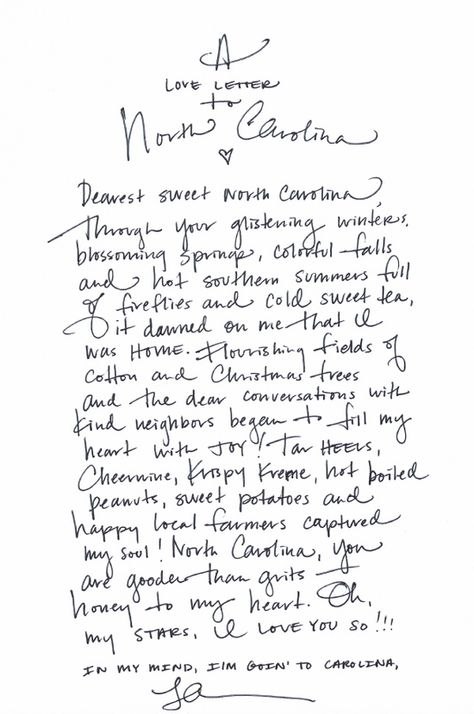 A
LOVE LETTER
to
North Carolina
Dearest sweet North Carolina,
Through your glistening winters,
blossoming springs, colorful falls
and hot southern summers full
of fireflies and cold sweet tea,
it dawned on me that I
was HOME. Flourishing fields of
cotton and Christmas trees
and the dear conversations with
kind neighbors began to fill my
heart with JOY! Tar HEELS,
Cheerwine, Krispy Kreme, hot boiled
peanuts, sweet potatoes and
happy local farmers captured
my soul! North Carolina, you
are gooder than grits –
honey to my heart. Oh,
my STARS, I LOVE YOU SO!!!
IN MY MIND, I'M GOIN' TO CAROLINA,